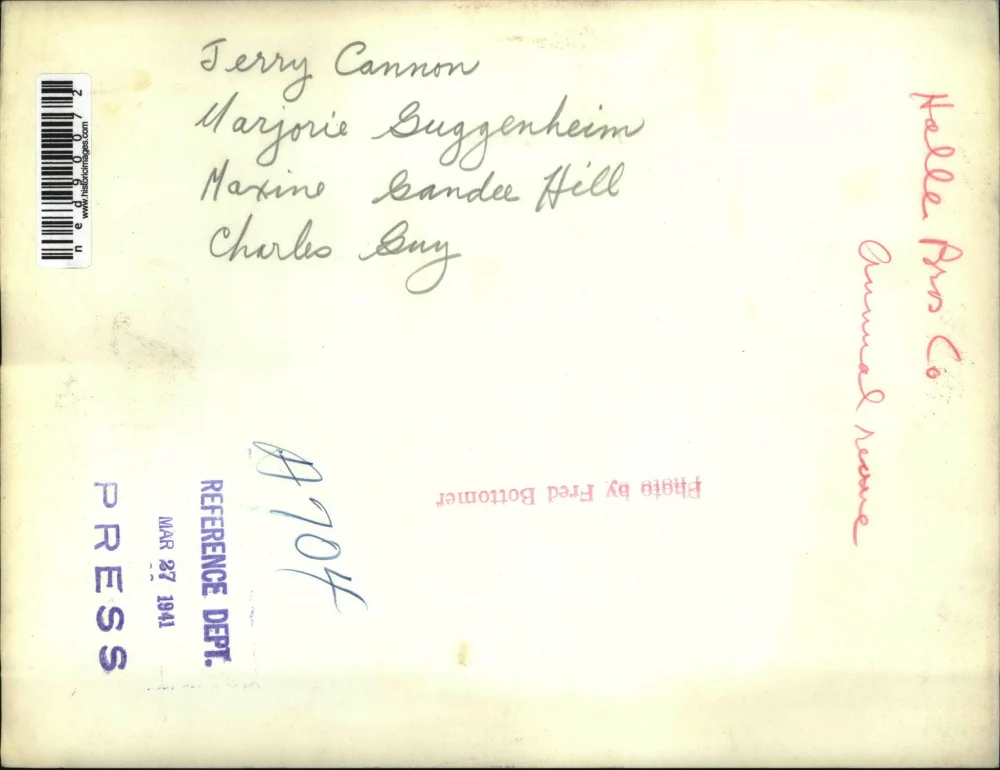 Jerry Cannon
Marjorie Guggenheim
Maxine Gandee Hill
Charles Guy
Halle Bros Co
Annual revue
A704
Photo by Fred Bottomer
REFERENCE DEPT.
MAR 27 1941
PRESS
ned90072
www.historicimages.com